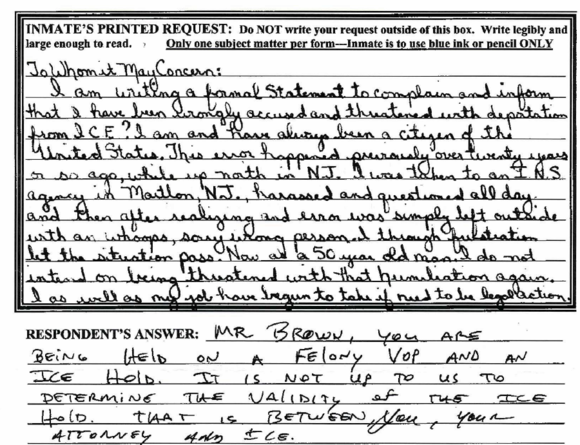 INMATE'S PRINTED REQUEST: Do NOT write your request outside of this box. Write legibly and
large enough to read. Only one subject matter per form---Inmate is to use blue ink or pencil ONLY
To Whom it May Concern:
I am writing a formal Statement to complain and inform
that I have been wrongly accused and threatened with deportation
from ICE? I am and have always been a citizen of the
United States. This error happened previously over twenty years
or so ago, while up north in NJ. I was taken to an INS
agency in Marlton, NJ., harassed and questioned all day.
and then after realizing and error was simply left outside
with an whoops, sorry wrong person. I through fustration
let the situation pass. Now as a 50 year old man I do not
intend on being threatened with that humiliation again.
I as well as my job have begun to take if need to be legal action.
RESPONDENT'S ANSWER: MR BROWN, YOU ARE
BEING HELD ON A FELONY VOP AND AN
ICE HOLD. IT IS NOT UP TO US TO
DETERMINE THE VALIDITY of THE ICE
HOLD. THAT IS BETWEEN You, YOUR
ATTORNEY AND ICE.